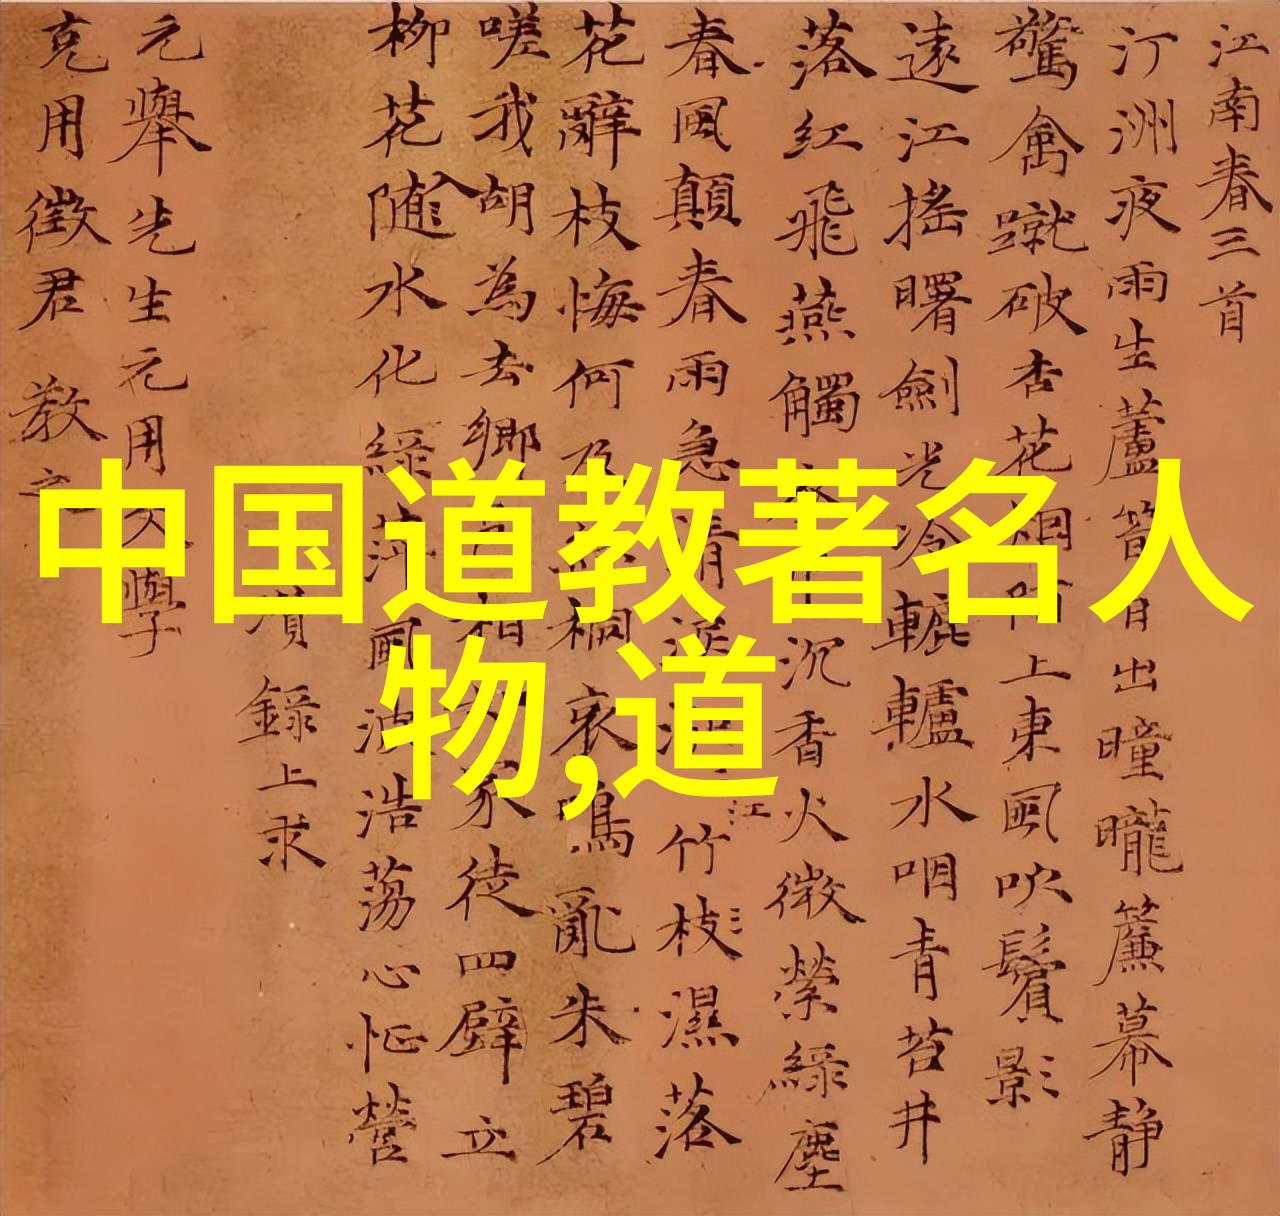 江南春三首
汀洲夜雨生蘆筍日出曈曨簾幕静
驚禽蹴破杏花烟陌上東風吹鬢影
遠江摇曙劍光冷轆轤水咽青苔井
落紅飛燕觸沉香火微縈綠塵
春風顛春雨急清泪江竹枝濕落
花辭枝悔何及桐哀鳴亂朱碧
嗟我胡為去鄉相家徒四壁立
柳花随水化綠萍風波浩蕩心忙營
瓚錄上求
元舉先生元用文學
克用徵君教之
中国道教著名人
物,道